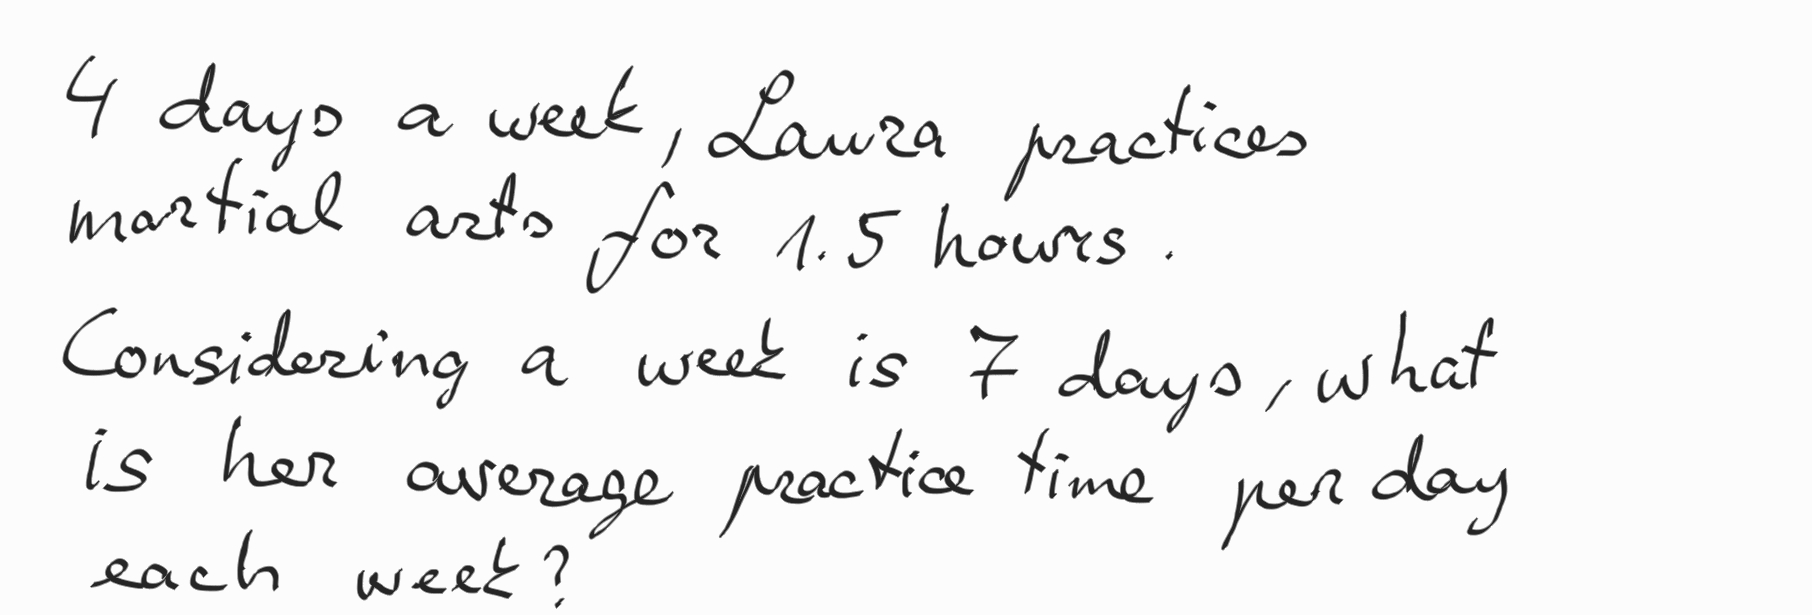 4 days a week, Laura practices
martial arts for 1.5 hours.
Considering a week is 7 days, what
is her average practice time per day
each week?